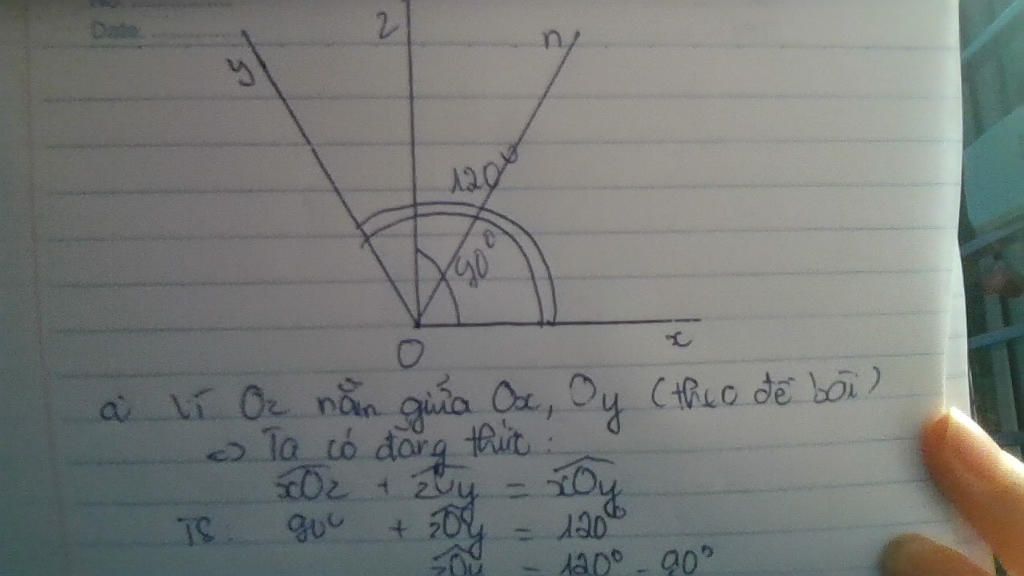 No.
Date.
z
n
y
120°
90°
O
x
a) Vì Oz nằm giữa Ox, Oy (theo đề bài)
<=> Ta có đẳng thức:
xOz + zOy = xOy
TS: 90° + zOy = 120°
zOy = 120° - 90°